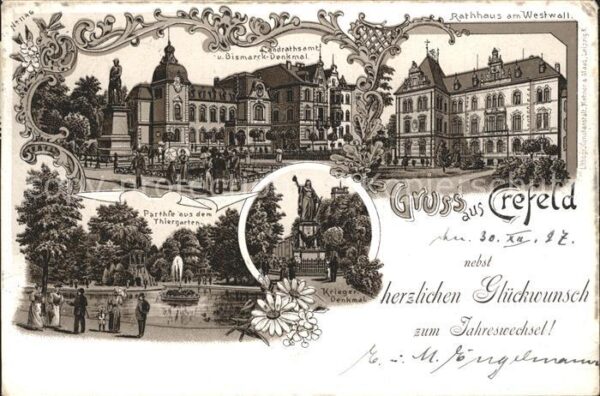 Landrathsamt
u. Bismarck-Denkmal.
Rathhaus am Westwall.
Parthie aus dem
Thiergarten.
Krieger
Denkmal.
Gruss aus Crefeld
den 30. XII. 97.
nebst
herzlichen Glückwunsch
zum Jahreswechsel!
E. u. M. Engelmann